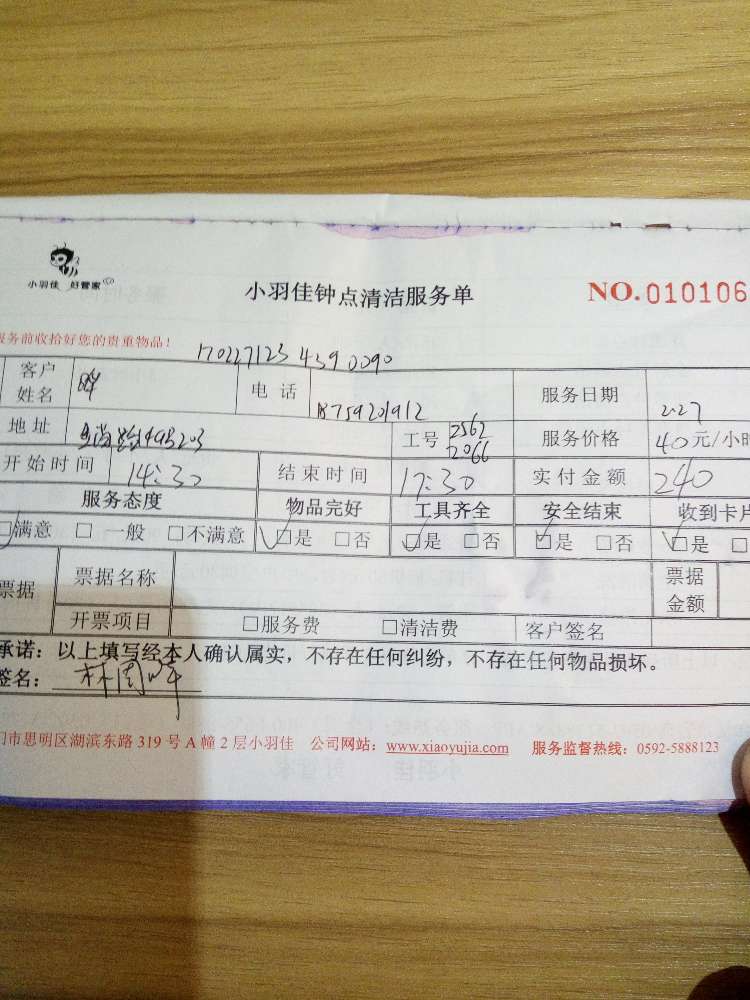 小羽佳 好管家
小羽佳钟点清洁服务单
NO.010106
服务前收拾好您的贵重物品！
1702271234390090
客户姓名 晔 电话 服务日期 2.27
地址 工号 2562 2066 服务价格 40元/小时
开始时间 14:30 结束时间 17:30 实付金额 240
服务态度 物品完好 工具齐全 安全结束 收到卡片
☑满意 □一般 □不满意 ☑是 □否 ☑是 □否 ☑是 □否 ☑是 □
票据 票据名称 票据金额
开票项目 □服务费 □清洁费 客户签名
承诺：以上填写经本人确认属实，不存在任何纠纷，不存在任何物品损坏。
签名：
门市思明区湖滨东路 319 号 A 幢 2 层小羽佳 公司网站：www.xiaoyujia.com 服务监督热线：0592-5888123